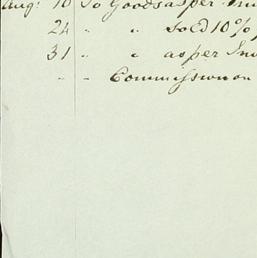 Aug: 10 To Goods as per Inv
24 " " Sold 10%
31 " " as per Inv
" " Commission on